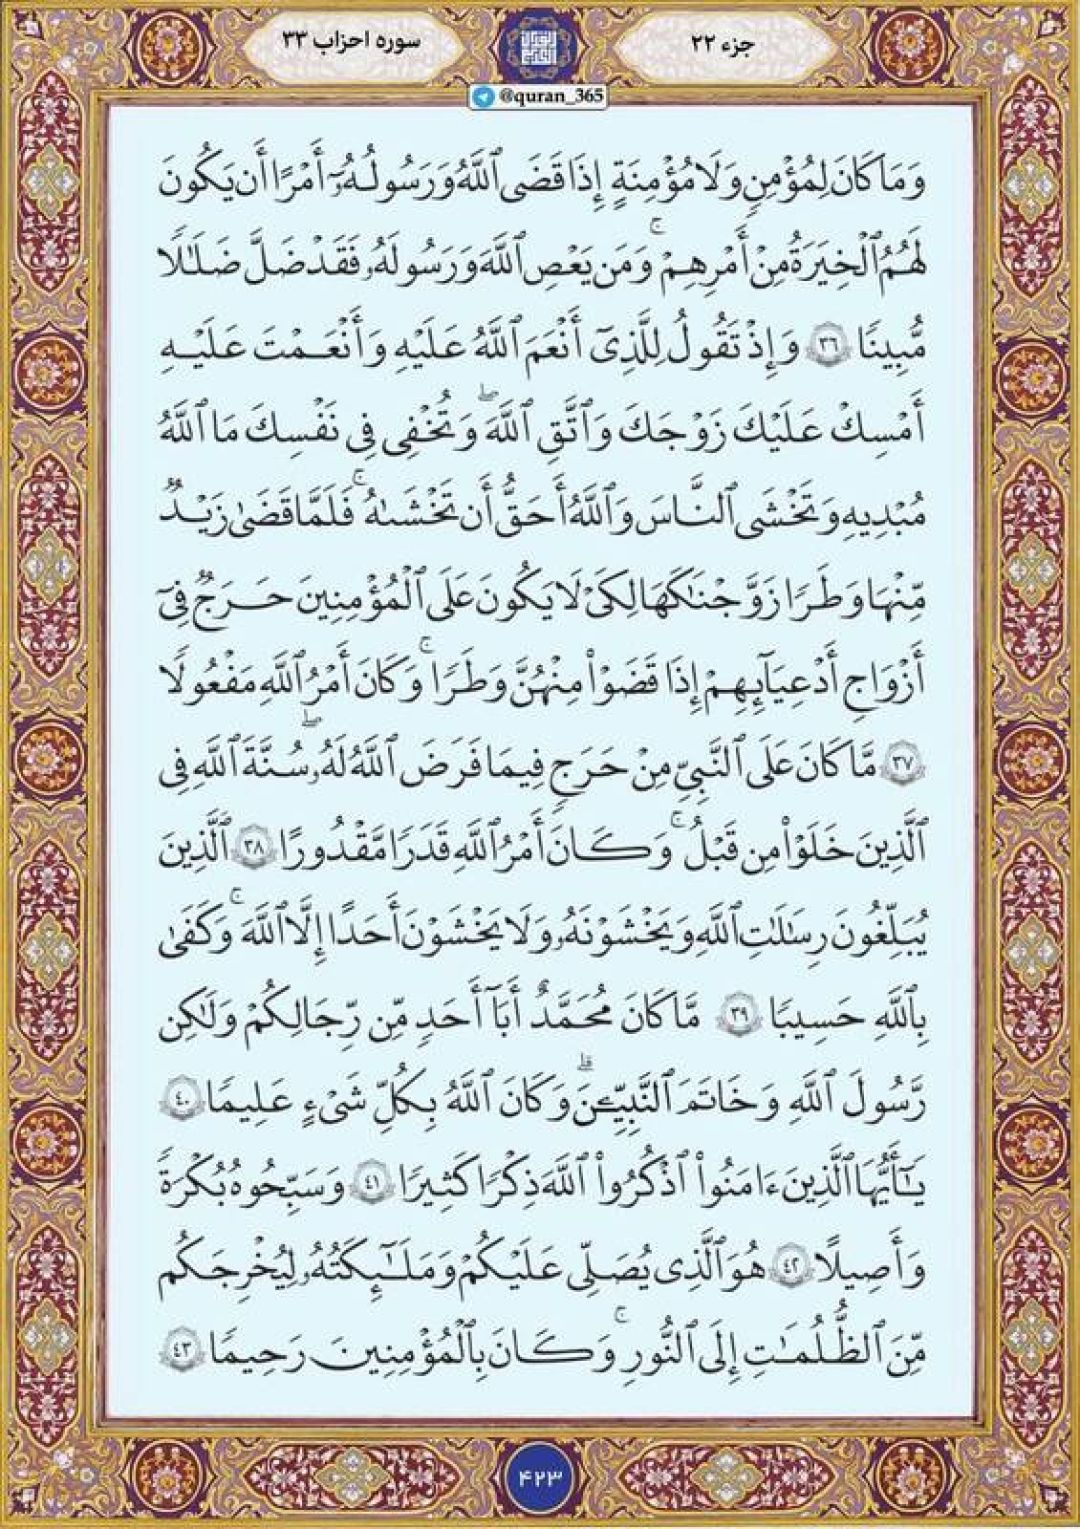 سوره احزاب ۳۳
جزء ۲۲
@quran_365
وَمَا كَانَ لِمُؤْمِنٍ وَلَا مُؤْمِنَةٍ إِذَا قَضَى ٱللَّهُ وَرَسُولُهُۥٓ أَمْرًا أَن يَكُونَ
لَهُمُ ٱلْخِيَرَةُ مِنْ أَمْرِهِمْ ۚ وَمَن يَعْصِ ٱللَّهَ وَرَسُولَهُۥ فَقَدْ ضَلَّ ضَلَـٰلًا
مُّبِينًا ٣٦ وَإِذْ تَقُولُ لِلَّذِىٓ أَنْعَمَ ٱللَّهُ عَلَيْهِ وَأَنْعَمْتَ عَلَيْهِ
أَمْسِكْ عَلَيْكَ زَوْجَكَ وَٱتَّقِ ٱللَّهَ ۖ وَتُخْفِى فِى نَفْسِكَ مَا ٱللَّهُ
مُبْدِيهِ وَتَخْشَى ٱلنَّاسَ وَٱللَّهُ أَحَقُّ أَن تَخْشَىٰهُ ۚ فَلَمَّا قَضَىٰ زَيْدٌ
مِّنْهَا وَطَرًا زَوَّجْنَـٰكَهَا لِكَىْ لَا يَكُونَ عَلَى ٱلْمُؤْمِنِينَ حَرَجٌ فِىٓ
أَزْوَاجِ أَدْعِيَآئِهِمْ إِذَا قَضَوْا۟ مِنْهُنَّ وَطَرًا ۚ وَكَانَ أَمْرُ ٱللَّهِ مَفْعُولًا
٣٧ مَّا كَانَ عَلَى ٱلنَّبِىِّ مِنْ حَرَجٍ فِيمَا فَرَضَ ٱللَّهُ لَهُۥ ۖ سُنَّةَ ٱللَّهِ فِى
ٱلَّذِينَ خَلَوْا۟ مِن قَبْلُ ۚ وَكَانَ أَمْرُ ٱللَّهِ قَدَرًا مَّقْدُورًا ٣٨ ٱلَّذِينَ
يُبَلِّغُونَ رِسَـٰلَـٰتِ ٱللَّهِ وَيَخْشَوْنَهُۥ وَلَا يَخْشَوْنَ أَحَدًا إِلَّا ٱللَّهَ ۚ وَكَفَىٰ
بِٱللَّهِ حَسِيبًا ٣٩ مَّا كَانَ مُحَمَّدٌ أَبَآ أَحَدٍ مِّن رِّجَالِكُمْ وَلَـٰكِن
رَّسُولَ ٱللَّهِ وَخَاتَمَ ٱلنَّبِيِّـۧنَ ۗ وَكَانَ ٱللَّهُ بِكُلِّ شَىْءٍ عَلِيمًا ٤٠
يَـٰٓأَيُّهَا ٱلَّذِينَ ءَامَنُوا۟ ٱذْكُرُوا۟ ٱللَّهَ ذِكْرًا كَثِيرًا ٤١ وَسَبِّحُوهُ بُكْرَةً
وَأَصِيلًا ٤٢ هُوَ ٱلَّذِى يُصَلِّى عَلَيْكُمْ وَمَلَـٰٓئِكَتُهُۥ لِيُخْرِجَكُم
مِّنَ ٱلظُّلُمَـٰتِ إِلَى ٱلنُّورِ ۚ وَكَانَ بِٱلْمُؤْمِنِينَ رَحِيمًا ٤٣
۴۲۳